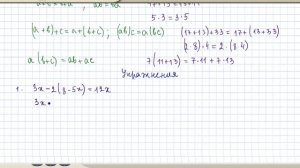 ab = ba 17+13 = 13+17
5·3 = 3·5
(a+b)+c = a+(b+c); (ab)c = a(bc) (17+13)+33 = 17+(13+33)
(2·8)·4 = 2·(8·4)
a(b+c) = ab+ac 7(11+13) = 7·11 + 7·13
Упражнения
1. 3x - 2(8-5x) = 12x
3x